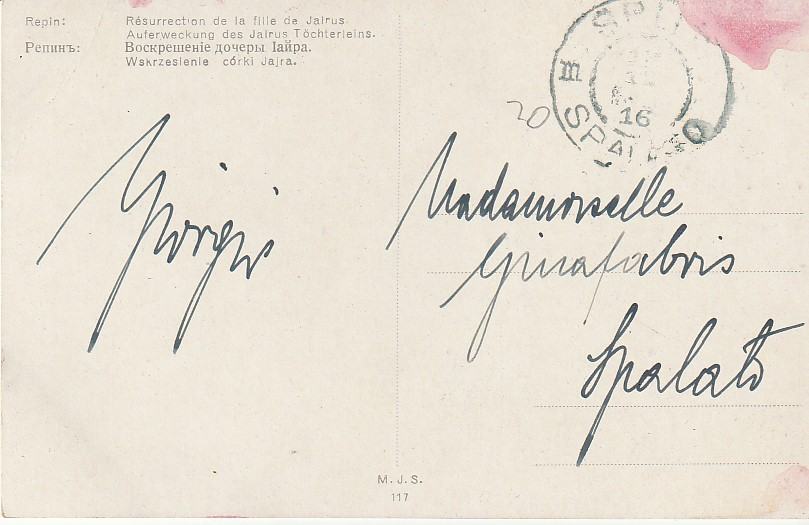 Repin: Résurrection de la fille de Jaïrus.
Auferweckung des Jairus Töchterleins.
Репинъ: Воскрешеніе дочеры Іаира.
Wskrzesienie córki Jajra.
SPLJ
16
SPALATO
20
Giorgio
Mademoiselle
Gina Fabris
Spalato
M. J. S.
117